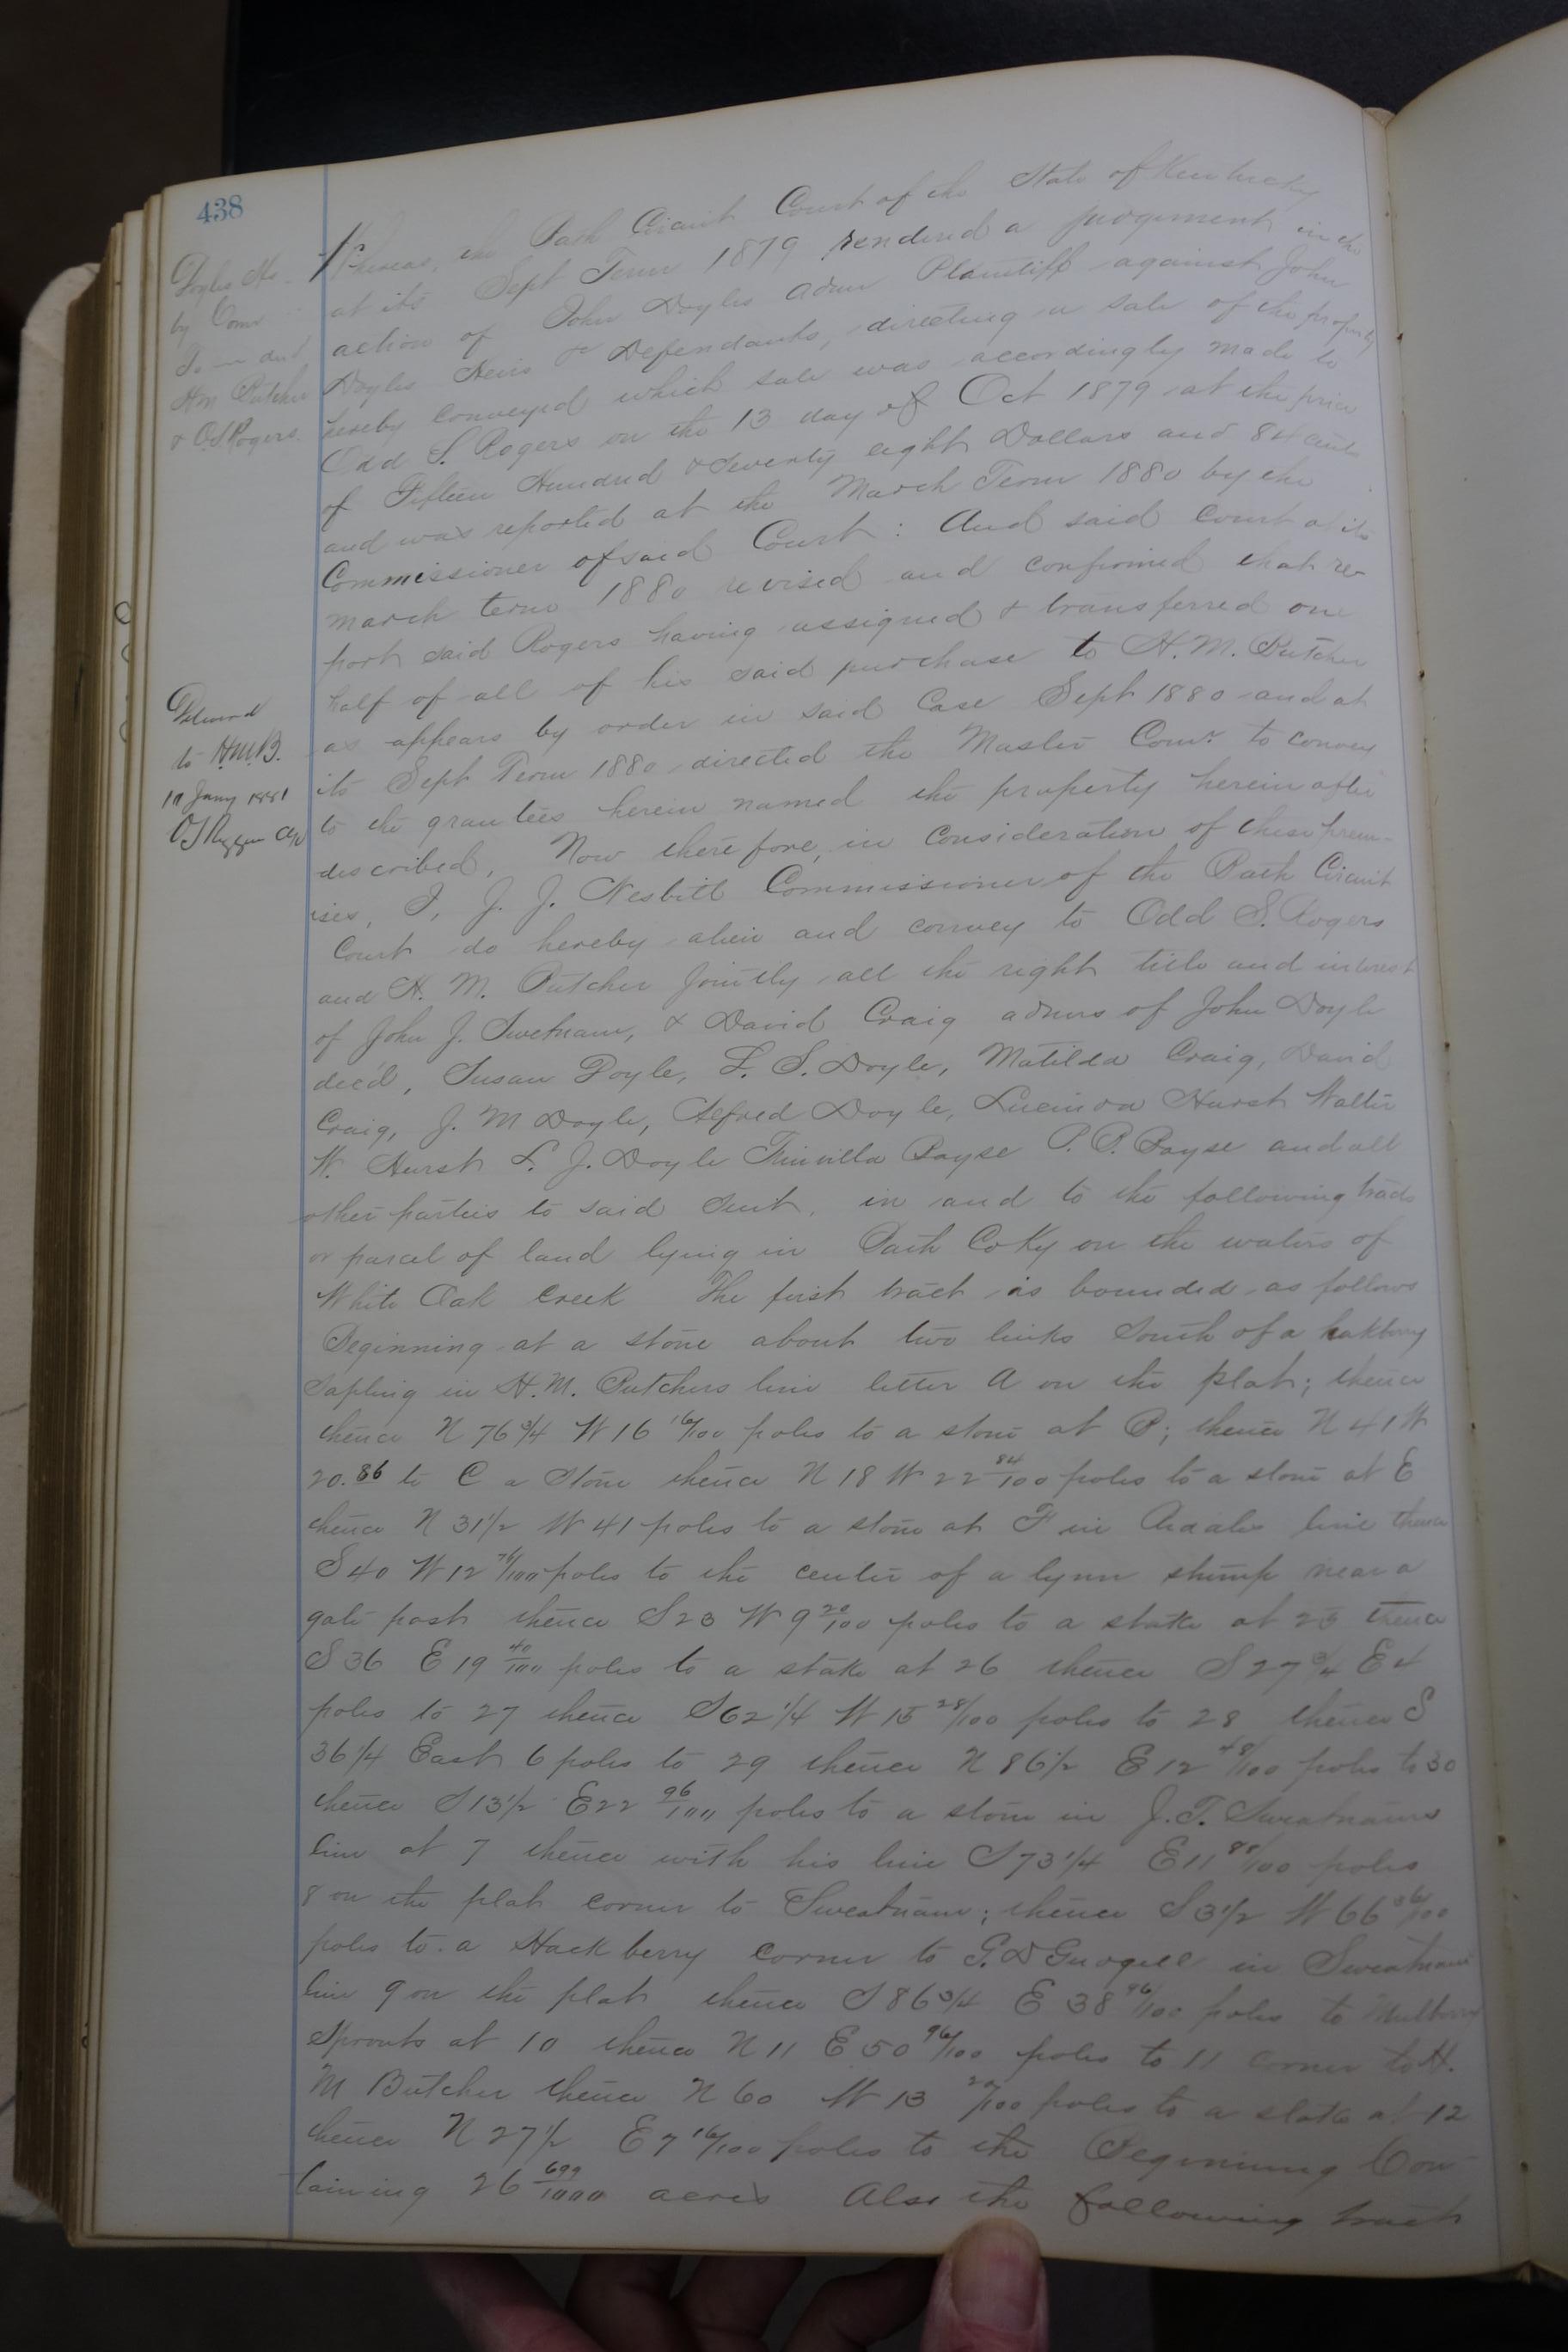 438
Doyles Hr
by Comr
To   deed
HM Butcher
& O.S Rogers.
Whereas, the Bath Circuit Court of the State of Kentucky
at its Sept Term 1879 rendered a judgement in the
action of John Doyles admr Plaintiff against John
Doyles Heirs & Defendants, directing a sale of the property
hereby conveyed which sale was accordingly made to
Odd S. Rogers on the 13 day of Oct 1879 at the price
of Fifteen Hundred & Seventy eight Dollars and 84 cents
and was reported at the March Term 1880 by the
Commissioner of said Court: And said court at its
March term 1880 revised and confirmed that re-
port said Rogers having assigned & transferred one
half of all of his said purchase to H. M. Butcher
as appears by order in said Case Sept 1880 and at
its Sept Term 1880 directed the Master Comr. to convey
to the grantees herein named the property herein after
described. Now therefore, in consideration of these prem-
ises, I, J. J. Nesbitt Commissioner of the Bath Circuit
Court do hereby alien and convey to Odd S. Rogers
and H. M. Butcher jointly all the right title and interest
of John J. Swetnam, & David Craig admrs of John Doyle
dec'd, Susan Doyle, L. S. Doyle, Matilda Craig, David
Craig, J. M Doyle, Alfred Doyle, Lucinda Hurst Walter
W. Hurst L. J. Doyle Trinvilla Bayse P. P. Bayse and all
other parties to said Suit. in and to the following tracts
or parcel of land lying in Bath Co Ky on the waters of
White Oak Creek The first tract is bounded as follows
Beginning at a stone about two links South of a hakberry
Sapling in H. M. Butchers line letter A on the plat; thence
thence N 76 3/4 W 16 16/100 poles to a stone at B; thence N 41 W
20.86 to C a Stone thence N 18 W 22 84/100 poles to a stone at E
thence N 31 1/2 W 41 poles to a stone at F in line thence
S 40 W 12 76/100 poles to the center of a lynn stump near a
gate post thence S 23 W 9 20/100 poles to a stake at 25 thence
S 36 E 19 40/100 poles to a stake at 26 thence S 27 3/4 E 4
poles to 27 thence S 62 1/4 W 15 28/100 poles to 28 thence S
36 1/4 East 6 poles to 29 thence N 86 1/2 E 12 48/100 poles to 30
thence S 13 1/2 E 22 96/100 poles to a stone in J. T. Sweatnams
line at 7 thence with his line S 73 1/4 E 11 80/100 poles
8 on the plat corner to Sweatnam; thence S 3 1/2 W 66 36/100
poles to a Hackberry corner to G. D Gudgell in Sweatnams
line 9 on the plat thence S 86 3/4 E 38 96/100 poles to Mulberry
Sprouts at 10 thence N 11 E 50 96/100 poles to 11 corner to H.
M Butcher thence N 60 W 13 20/100 poles to a stake at 12
thence N 27 1/2 E 7 16/100 poles to the Beginning Con-
taining 26 699/1000 acres Also the following tract
Delivered
to H.M.B.
Jany 1881